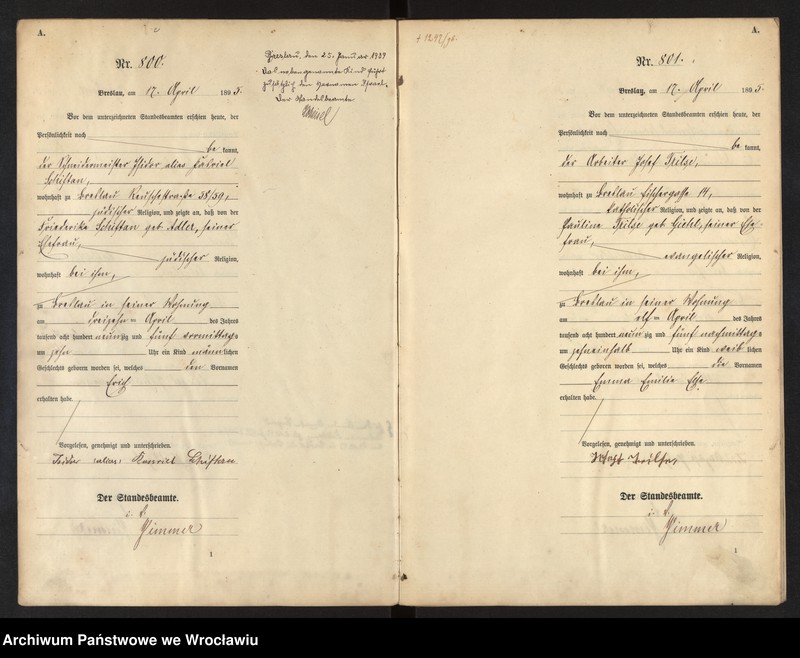 A.
Nr. 800.
Breslau, am 17. April 1895.
Vor dem unterzeichneten Standesbeamten erschien heute, der
Persönlichkeit nach
be kannt,
der Schneidermeister Isidor alias Gabriel
Schiftan,
wohnhaft zu Breslau Reuschestraße 58/59,
jüdischer Religion, und zeigte an, daß von der
Friederike Schiftan geb Adler, seiner
Ehefrau,
jüdischer Religion,
wohnhaft bei ihm,
zu Breslau in seiner Wohnung
am dreizehn ten April des Jahres
tausend acht hundert neunzig und fünf vormittags
um zehn Uhr ein Kind männlichen
Geschlechts geboren worden sei, welches den Vornamen
Erich
erhalten habe.
Vorgelesen, genehmigt und unterschrieben.
Isidor alias Schiftan
Der Standesbeamte.
Zimmer
1
Breslau, den 23. Januar 1939
Das nebengenannte Kind führt
zusätzlich den Vornamen Israel.
Der Standesbeamte
A.
Nr. 801.
Breslau, am 17. April 1895.
Vor dem unterzeichneten Standesbeamten erschien heute, der
Persönlichkeit nach
be kannt,
der Arbeiter Josef
wohnhaft zu Breslau Fischergasse 14,
katholischer Religion, und zeigte an, daß von der
Pauline geb seiner Ehe-
frau,
evangelischer Religion,
wohnhaft bei ihm,
zu Breslau in seiner Wohnung
am elf ten April des Jahres
tausend acht hundert neunzig und fünf nachmittags
um zehneinhalb Uhr ein Kind weiblichen
Geschlechts geboren worden sei, welches die Vornamen
Emma Emilie Else
erhalten habe.
Vorgelesen, genehmigt und unterschrieben.
Der Standesbeamte.
Zimmer
1
Archiwum Państwowe we Wrocławiu